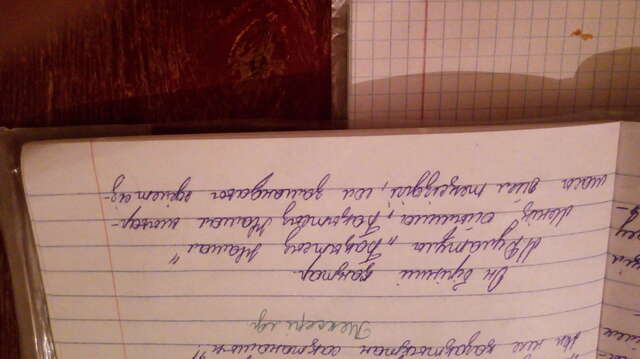 Мен неге қазақтықтан сақтанамын?!
Тексерілді.
Он бірінші қаңтар.
М.Дулатұлы „Бақытсыз Жамал"
Менің ойымша, „Бақытсыз Жамал шығар-
масы әйел теңсіздігі, сол замандағы әділетсіз-